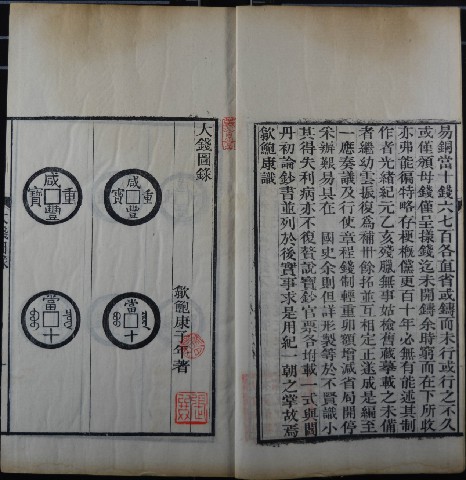 易銅當十錢六七百各直省或鑄而未行或行之不久
或僅頒母錢僅呈樣錢迄未開鑄余時窮而在下所收
亦弗能徧特略存梗概儻更百十年必無有能述其制
作者光緒紀元乙亥殘臘無事姑檢舊藏摹載之未備
者繼幼雲振復爲補卌餘拓並互相定正遂成是編至
一應奏議及行使章程錢制輕重卯額增減省局開停
采辦艱易具在 國史余則但詳形製等於不賢識小
其得失利病亦不復贅說寶鈔官票各坿載一式與閻
丹初論鈔書並列於後實事求是用紀一朝之掌故焉
歙鮑康識
大錢圖錄
歙鮑康子年著
咸豐重寶
當十
咸豐重寶
當十
大錢圖錄